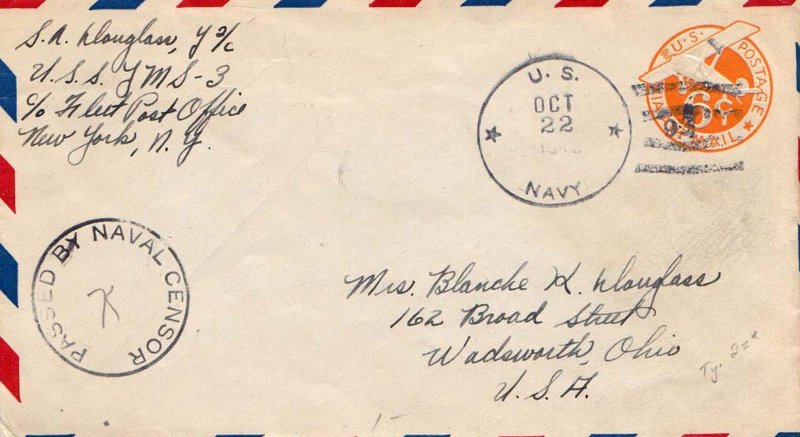 S. A. Douglass, Y 2/c
U.S.S. YMS-3
c/o Fleet Post Office
New York, N.Y.
U. S.
OCT
22
NAVY
U.S. POSTAGE
6¢
VIA AIR MAIL
PASSED BY NAVAL CENSOR
K
Mrs. Blanche K. Douglass
162 Broad Street
Wadsworth, Ohio
U.S.A.
Ty. 2z*